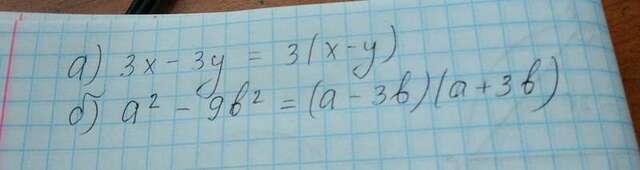 а) 3x - 3y = 3(x-y)
б) a² - 9b² = (a - 3b)(a + 3b)